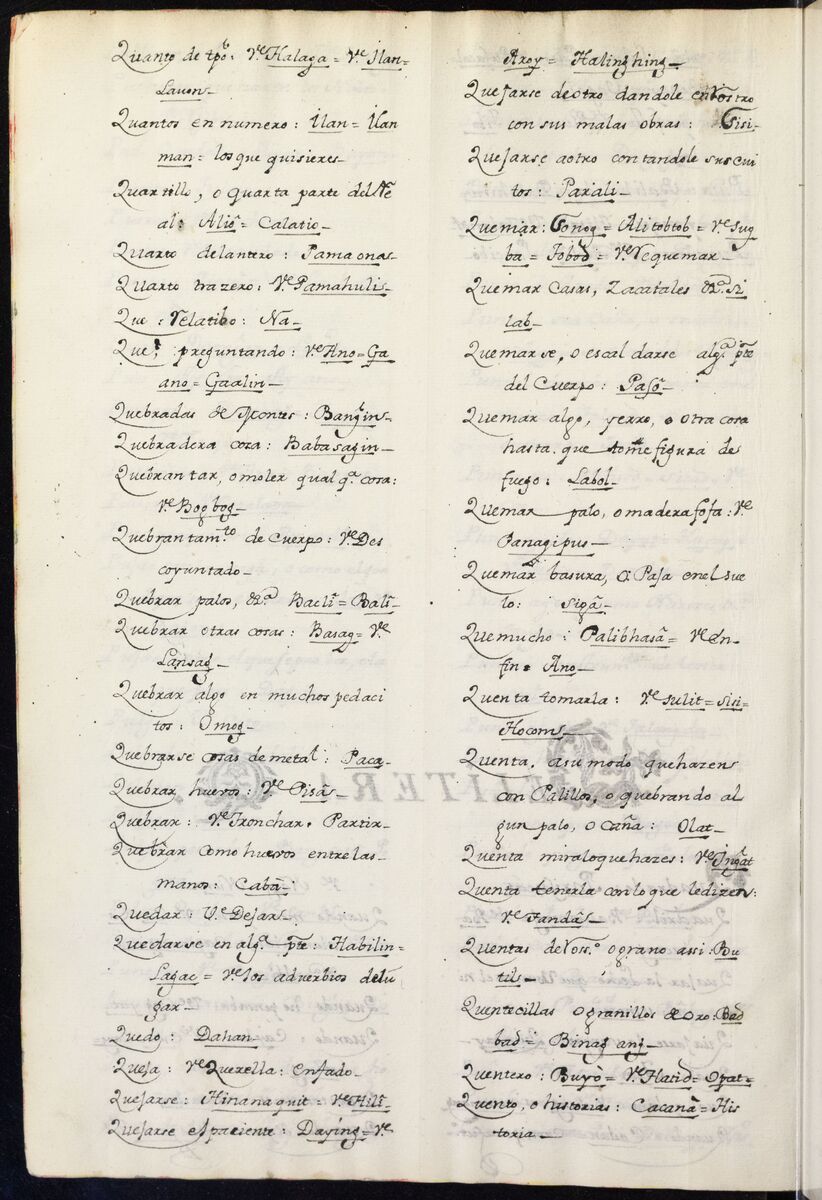 Quanto de tpo: Ve Halaga = Ve Ilan =
Lavon_
Quantos en numero: Ilan = Ilan
man = los que quisieres_
Quartillo, o quarta parte del Re
al: Alio = Calatio_
Quarto delantero: Pamaonas_
Quarto trazero: Ve Pamahuli_
Que: relatibo: Na_
Que, preguntando: Ve Ano = Ga
ano = Gaalin_
Quebradas de Montes: Bangin_
Quebradera cosa: Babasagin_
Quebrantar, o moler qualqa cosa:
Ve Bogbog_
Quebrantamto de cuerpo: Ve Des
coyuntado_
Quebrar palos, &a Bacli = Bali_
Quebrar otras cosas: Basag = Ve
Lansag_
Quebrar algo en muchos pedaci
tos: Omog_
Quebrarse cosas de metal: Paca_
Quebrar huevos: Ve Pisa_
Quebrar: Ve Tronchar. Partir_
Quebrar como huevos entre las
manos: Caba_
Quedar: Ve Dejar_
Quedarse en alga pte: Habilin =
Lagac = Ve los adverbios de lu
gar_
Quedo: Dahan_
Queja: Ve Querella: Enfado_
Quejarse: Hinanaquit = Ve Hili_
Quejarse el paciente: Daying = Ve
Aroy = Halinghing_
Quejarse de otro dandole en Rostro
con sus malas obras: Sisi_
Quejarse a otro contandole sus cui
tos: Parali_
Quemar: Sonog = Alitobtob = Ve Sug
ba = Tobod = Ve Requemar_
Quemar Casas, Zacatales &a Si
lab_
Quemarse, o escaldarse alga pte
del Cuerpo: Paso_
Quemar algo, yerro, o otra cosa
hasta que tome figura de
fuego: Labol_
Quemar palo, o madera fofa: Ve
Panagipus_
Quemar basura, o Paja en el sue
lo: Siga_
Que mucho: Palibhasa = Ve En
fin = Ano_
Quenta tomarla: Ve Sulit = Sisi =
Hocom_
Quenta, a su modo que hazen
con Palillos, o quebrando al
gun palo, o caña: Olat_
Quenta mira lo que hazes: Ve Ingat
Quenta tenerla con lo que le dizen:
Ve Tanda_
Quentas de Roso o grano assi: Bu
til_
Quentecillas o granillos de oro: Bad
bad = Binagang_
Quentero: Buyo = Ve Hatid = Opat =
Quento, o historias: Cacana = His
toria_